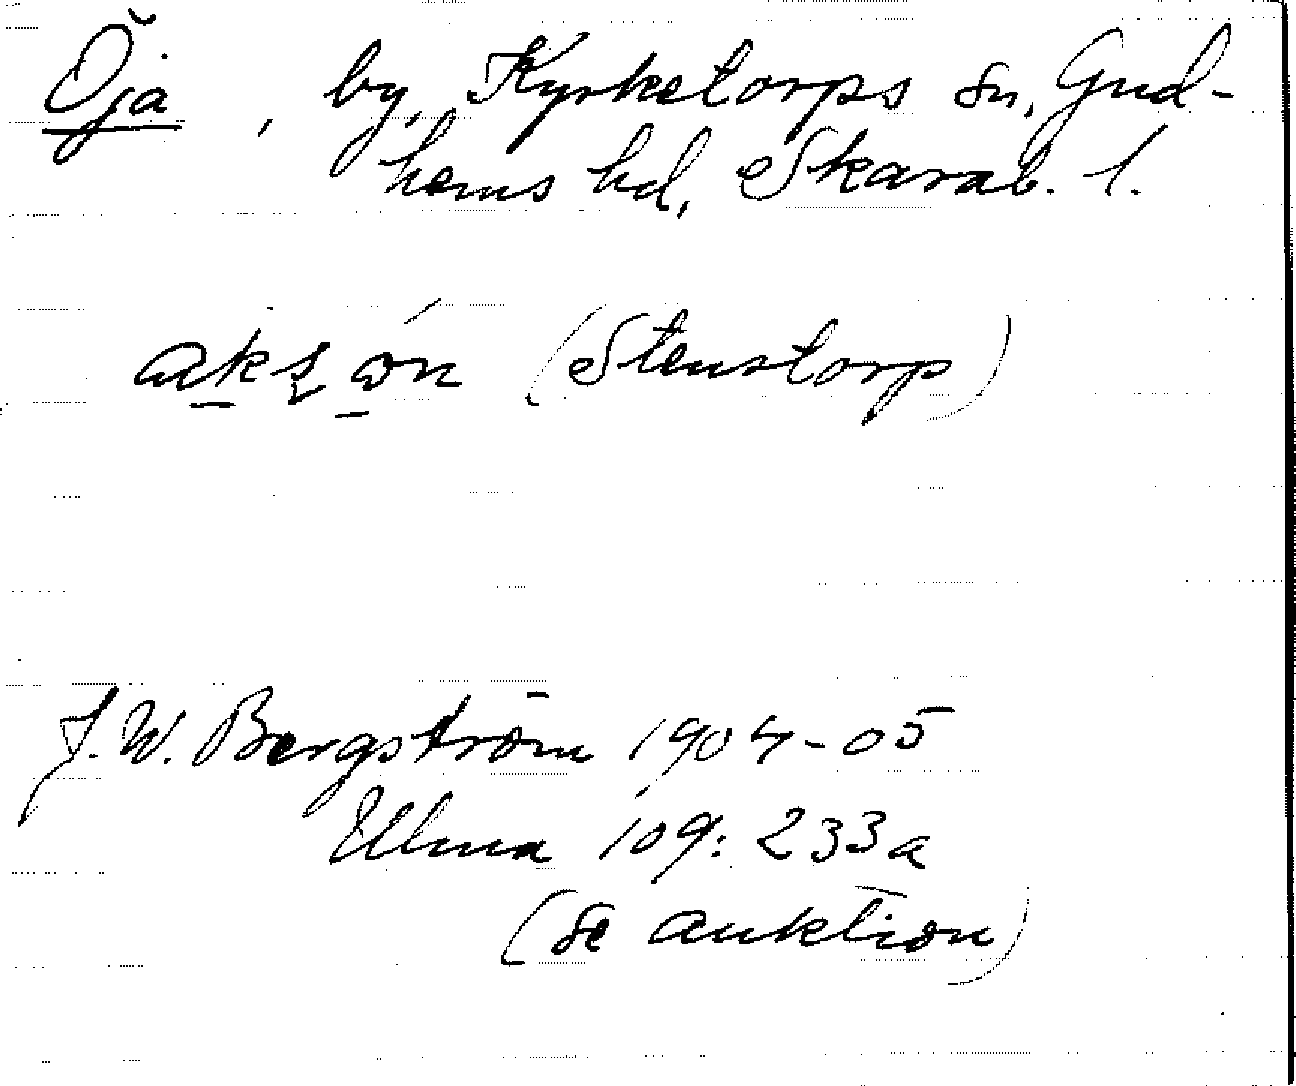 Öja, by, Kyrketorps sn, Gud-
hems hd, Skarab. l.
(Stenstorp)
J. W. Bergström 1904-05
Ulma 109: 233a
(se auktion)